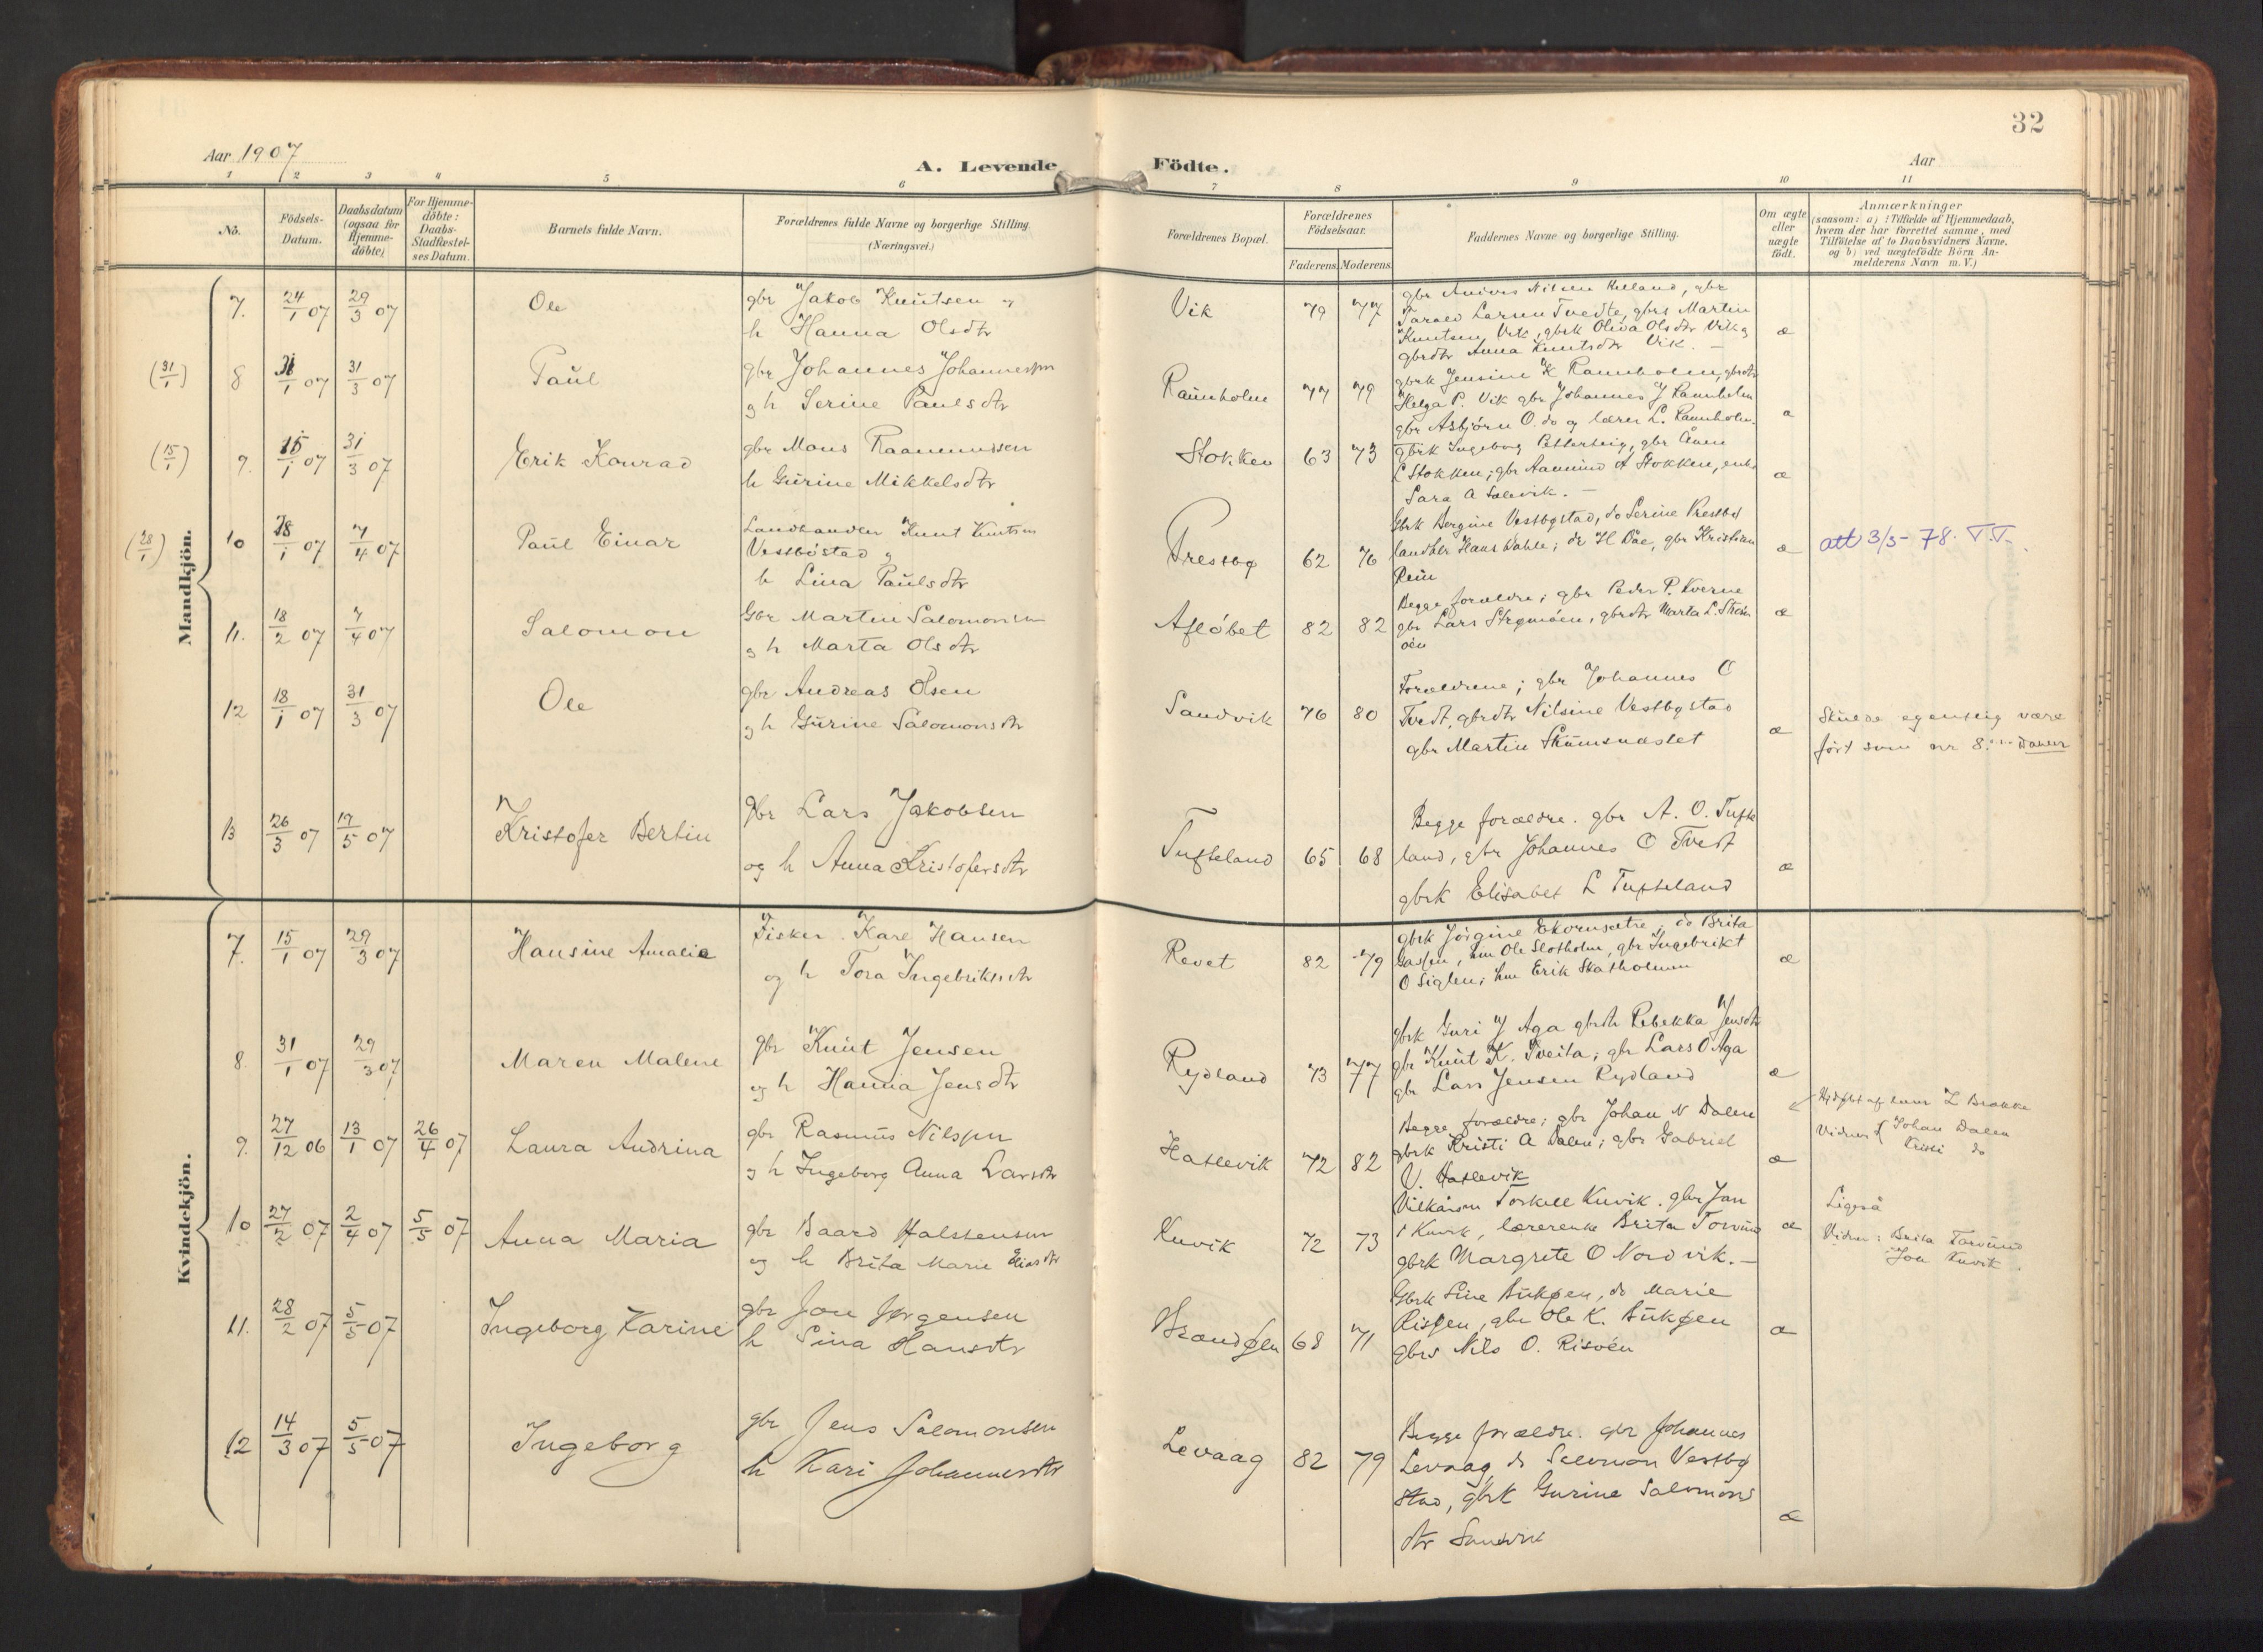 32
Aar 1907
A. Levende Födte.
Aar
1 2 3 4 5 6 7 8 9 10 11
No.
Födsels-
Datum.
Daabsdatum
(ogsaa for
Hjemme-
döbte)
For Hjemme-
döbte:
Daabs-
Stadfæstel-
ses Datum.
Barnets fulde Navn.
Forældrenes fulde Navne og borgerlige Stilling.
(Næringsvei.)
Forældrenes Bopæl.
Forældrenes
Födselsaar.
Faderens Moderens
Faddernes Navne og borgerlige Stilling.
Om ægte
eller
uægte
födt.
Anmærkninger
(saasom: a) i Tilfælde af Hjemmedaab,
hvem der har forrettet samme, med
Tilföielse af to Daabsvidners Navne,
og b) ved uægtefödte Börn An-
melderens Navn m. V.)
Mandkjön.
7. 24/1 07 29/3 07 Ole
gbr Jakob Knutsen og
h Hanna Olsdtr
Vik 79 77
gbr Nilsen gbr
Tarald Larsen Tvedte, gbrs Martin
Knutsen Vik, gbrk Oliva Olsdtr Vik og
gbrdtr Anna Knutsdtr Vik. —
æ
(31/1) 8 31/1 07 31/3 07 Paul
gbr Johannes Johannesen
og h Serine Paulsdtr
Raunholm 77 79
gbrk Jensine K Raunholm, gbrdtr
Helga P. Vik gbr Johannes J Raunholm
gbr Asbjörn O. do og lærer L. Raunholm.
æ
(15/1) 9. 15/1 07 31/3 07 Erik Konrad
gbr Mons Raamundsen
h Gurine Mikkelsdtr
Stokken 63 73
gbrk Ingeborg Pettersteig, gbr Aamu
L Stokken; gbr Aamund A Stokken, enke
Sara A Solevik. —
æ
(28/1) 10 28/1 07 7/4 07 Paul Einar
Landhandler Knut Knutsen
Vestböstad og
h Lina Paulsdtr
Presthø 62 76
Gbrk Bergine Vestbøstad, do Serine
landhlr Hans Dahle; do H Dåe, gbr Kristian
Rein
æ
att 3/5- 78. T.T.
11. 18/2 07 7/4 07 Salomon
Gbr Martin Salomonsen
og h Marta Olsdtr
Afløbet 82 82
Begge forældre; gbr Peder P. Kverne
gbr Lars Strømöen, gbrdtr Marta L. Ström
öen
æ
12 18/1 07 31/3 07 Ole
gbr Andreas Olsen
og h Gurine Salomonsdtr
Sandvik 76 80
Forældrene; gbr Johannes O
Tvedt, gbrdtr Nilsine Vestbøstad
gbr Martin Skumsnæstet
æ
Skulde egentlig være
ført som nr 8.
13 26/3 07 19/5 07 Kristofer Bertin
gbr Lars Jakobsen
og h Anna Kristofersdtr
Tufteland 65 68
Begge forældre. gbr A. O. Tufte
land, gbr Johannes O Tvedt
gbrk Elisabet L Tufteland
æ
Kvindekjön.
7. 15/1 07 29/3 07 Hansine Amalie
Fisker Karl Hansen
og h Tora Ingebriktsdtr
Revet 82 79
gbrk Jörgine Ekornsætre, do Brita
Gasøen, hm Ole Slotholm, gbr Ingebrikt
O Siglen; hm Erik Skatholmen
æ
8. 31/1 07 29/3 07 Maren Malene
gbr Knut Jensen
og h Hanna Jensdtr
Rydland 73 77
gbrk Guri J Aga gbrdtr Rebekka Jensdtr
gbr Knut K. Tveita; gbr Lars O Aga
gbr Lars Jensen Rydland
æ
9. 27/12 06 13/1 07 26/4 07 Laura Andrina
gbr Rasmus Nilssen
og h Ingeborg Anna Larsdtr
Hatlevik 72 82
Begge forældre; gbr Johan N Dalen
gbrk Kristi A Dalen; gbr Gabriel
V. Hatlevik
æ
Hjdøbt af L Brække
Vidner { Johan Dalen
Kristi do
10 27/2 07 2/4 07 5/5 07 Anna Maria
gbr Baard Halstensen
og h Brita Marie Eliasdtr
Kuvik 72 73
Vilkårsm Torkell Kuvik. gbr Jon
T Kuvik, lærerenke Brita Torvund
gbrk Margrete O Nordvik. —
æ
Ligeså
Vidner: Brita Torvund
Jon Kuvik.
11. 28/2 07 5/5 07 Ingeborg Karine
gbr Jon Jørgensen
h Sina Hansdtr
Brandøen 68 71
Gbrk Line Bukøen, do Marie
Risøen, gbr Ole K. Bukøen
gbrs Nils O. Risöen
æ
12 14/3 07 5/5 07 Ingeborg
gbr Jens Salomonsen
h Kari Johannesdtr
Levaag 82 79
Begge forældre. gbr Johannes
Levaag, do Salomon Vestbø
stad, gbrk Gurine Salomons
dtr Sandvik
æ